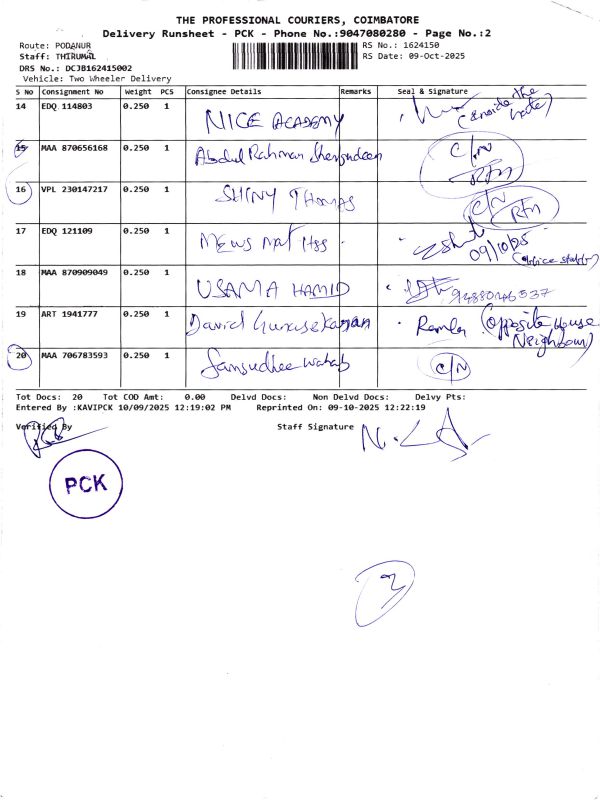 THE PROFESSIONAL COURIERS, COIMBATORE
Delivery Runsheet - PCK - Phone No.:9047080280 - Page No.:2
Route: PODANUR RS No.: 1624150
Staff: THIRUMAL RS Date: 09-Oct-2025
DRS No.: DCJB162415002
Vehicle: Two Wheeler Delivery
S No Consignment No Weight PCS Consignee Details Remarks Seal & Signature
14 EDQ 114803 0.250 1 NICE ACADEMY
15 MAA 870656168 0.250 1 Abdul Rahman C/N
16 VPL 230147217 0.250 1 SHINY THOMAS C/N
17 EDQ 121109 0.250 1 09/10/25
18 MAA 870909049 0.250 1 USAMA HAMID
19 ART 1941777 0.250 1 David Gunasekaran (Opposite House
Neighbour)
20 MAA 706783593 0.250 1 C/N
Tot Docs: 20 Tot COD Amt: 0.00 Delvd Docs: Non Delvd Docs: Delvy Pts:
Entered By :KAVIPCK 10/09/2025 12:19:02 PM Reprinted On: 09-10-2025 12:22:19
Verified By Staff Signature
PCK
3